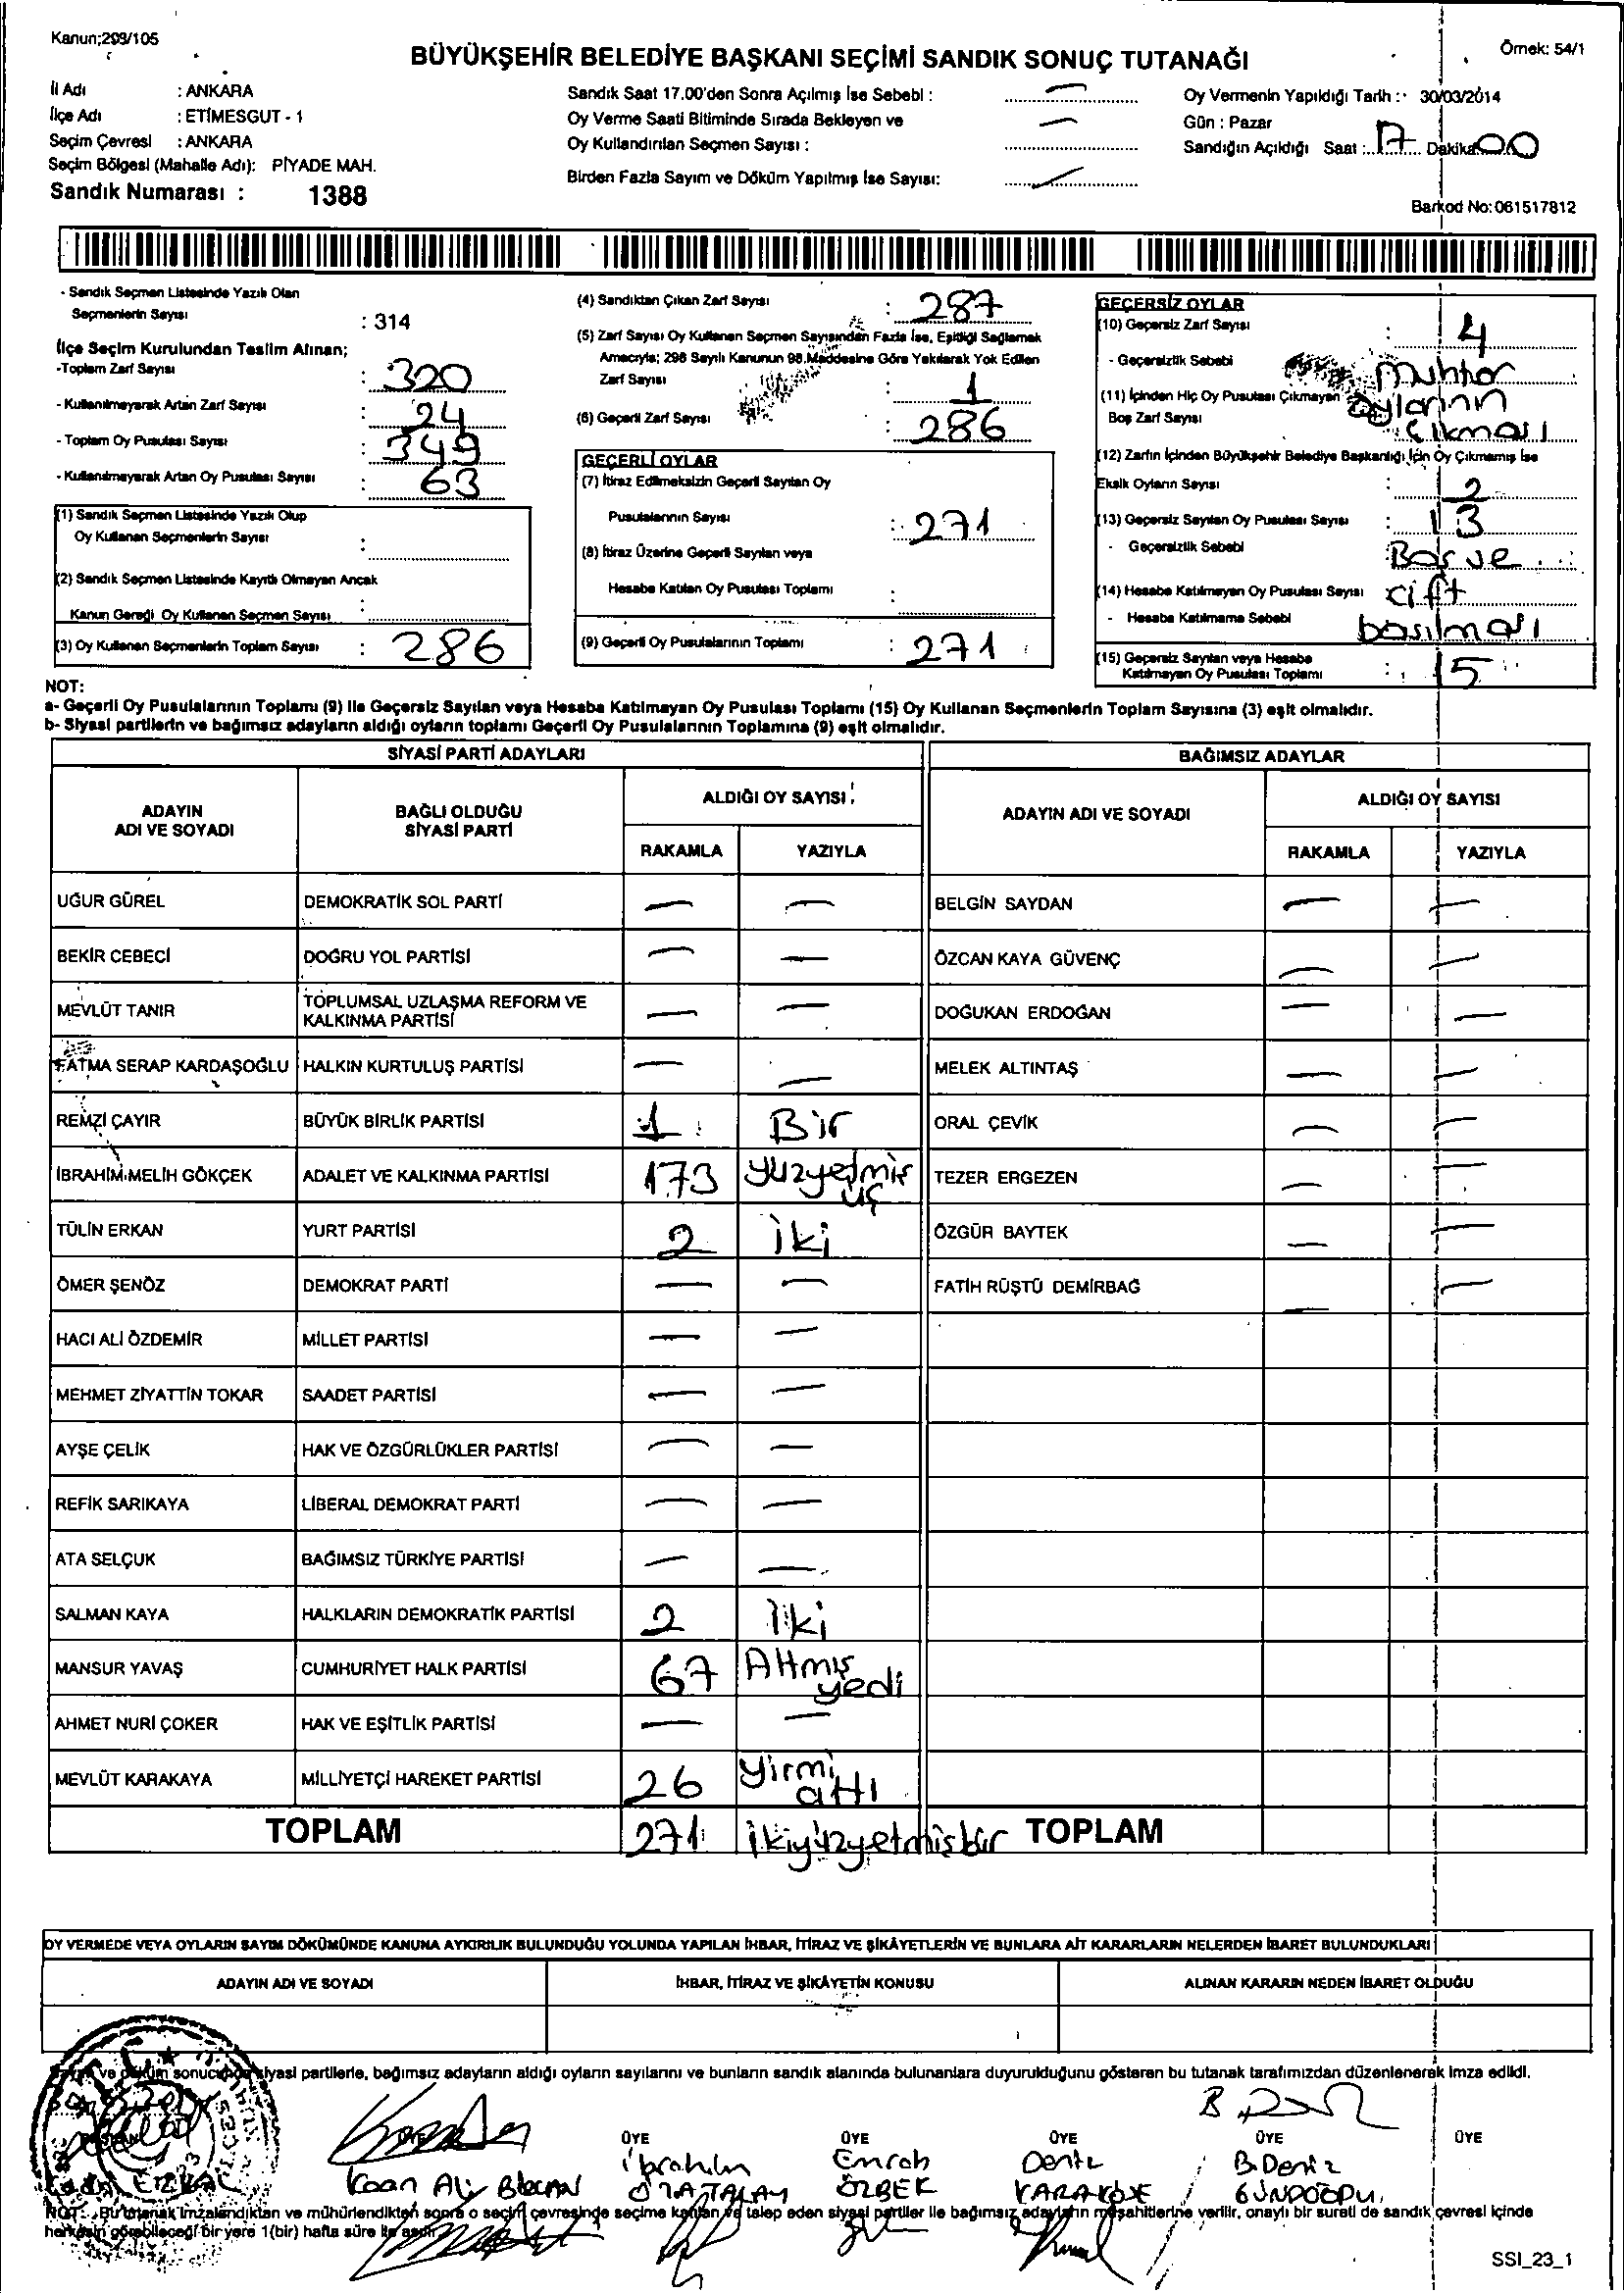 Kanun;298/105
BÜYÜKŞEHİR BELEDİYE BAŞKANI SEÇİMİ SANDIK SONUÇ TUTANAĞI
Örnek: 54/1
İl Adı : ANKARA
İlçe Adı : ETİMESGUT - 1
Seçim Çevresi : ANKARA
Seçim Bölgesi (Mahalle Adı): PİYADE MAH.
Sandık Numarası : 1388
Sandık Saat 17.00'den Sonra Açılmış İse Sebebi :
Oy Verme Saati Bitiminde Sırada Bekleyen ve
Oy Kullandırılan Seçmen Sayısı :
Birden Fazla Sayım ve Döküm Yapılmış İse Sayısı:
Oy Vermenin Yapıldığı Tarih : 30/03/2014
Gün : Pazar
Sandığın Açıldığı Saat : 17 Dakika 00
Barkod No: 061517812
- Sandık Seçmen Listesinde Yazılı Olan
Seçmenlerin Sayısı : 314
İlçe Seçim Kurulundan Teslim Alınan;
-Toplam Zarf Sayısı : 320
- Kullanılmayarak Artan Zarf Sayısı : 24
- Toplam Oy Pusulası Sayısı : 349
- Kullanılmayarak Artan Oy Pusulası Sayısı : 63
(1) Sandık Seçmen Listesinde Yazılı Olup
Oy Kullanan Seçmenlerin Sayısı :
(2) Sandık Seçmen Listesinde Kayıtlı Olmayan Ancak
Kanun Gereği Oy Kullanan Seçmen Sayısı :
(3) Oy Kullanan Seçmenlerin Toplam Sayısı : 286
(4) Sandıktan Çıkan Zarf Sayısı : 287
(5) Zarf Sayısı Oy Kullanan Seçmen Sayısından Fazla İse, Eşitliği Sağlamak
Amacıyla; 298 Sayılı Kanunun 98.Maddesine Göre Yakılarak Yok Edilen
Zarf Sayısı : 1
(6) Geçerli Zarf Sayısı : 286
GEÇERLİ OYLAR
(7) İtiraz Edilmeksizin Geçerli Sayılan Oy
Pusulalarının Sayısı : 271
(8) İtiraz Üzerine Geçerli Sayılan veya
Hesaba Katılan Oy Pusulası Toplamı :
(9) Geçerli Oy Pusulalarının Toplamı : 271
GEÇERSİZ OYLAR
(10) Geçersiz Zarf Sayısı : 4
- Geçersizlik Sebebi muhtar
(11) İçinden Hiç Oy Pusulası Çıkmayan oylarının
Boş Zarf Sayısı : çıkması
(12) Zarfın İçinden Büyükşehir Belediye Başkanlığı İçin Oy Çıkmamış İse
Eksik Oyların Sayısı : 2
(13) Geçersiz Sayılan Oy Pusulası Sayısı : 13
- Geçersizlik Sebebi Boş ve
(14) Hesaba Katılmayan Oy Pusulası Sayısı çift
- Hesaba Katılmama Sebebi basılması
(15) Geçersiz Sayılan veya Hesaba
Katılmayan Oy Pusulası Toplamı : 15
NOT:
a- Geçerli Oy Pusulalarının Toplamı (9) ile Geçersiz Sayılan veya Hesaba Katılmayan Oy Pusulası Toplamı (15) Oy Kullanan Seçmenlerin Toplam Sayısına (3) eşit olmalıdır.
b- Siyasi partilerin ve bağımsız adayların aldığı oyların toplamı Geçerli Oy Pusulalarının Toplamına (9) eşit olmalıdır.
SİYASİ PARTİ ADAYLARI
BAĞIMSIZ ADAYLAR
ADAYIN ADI VE SOYADI
BAĞLI OLDUĞU SİYASİ PARTİ
ALDIĞI OY SAYISI
RAKAMLA YAZIYLA
ADAYIN ADI VE SOYADI
ALDIĞI OY SAYISI
RAKAMLA YAZIYLA
UĞUR GÜREL DEMOKRATİK SOL PARTİ — — BELGİN SAYDAN — —
BEKİR CEBECİ DOĞRU YOL PARTİSİ — — ÖZCAN KAYA GÜVENÇ — —
MEVLÜT TANIR TOPLUMSAL UZLAŞMA REFORM VE KALKINMA PARTİSİ — — DOĞUKAN ERDOĞAN — —
FATMA SERAP KARDAŞOĞLU HALKIN KURTULUŞ PARTİSİ — — MELEK ALTINTAŞ — —
REMZİ ÇAYIR BÜYÜK BİRLİK PARTİSİ 1 Bir ORAL ÇEVİK — —
İBRAHİM MELİH GÖKÇEK ADALET VE KALKINMA PARTİSİ 173 yüzyetmiş üç TEZER ERGEZEN — —
TÜLİN ERKAN YURT PARTİSİ 2 iki ÖZGÜR BAYTEK — —
ÖMER ŞENÖZ DEMOKRAT PARTİ — — FATİH RÜŞTÜ DEMİRBAĞ — —
HACI ALİ ÖZDEMİR MİLLET PARTİSİ — —
MEHMET ZİYATTİN TOKAR SAADET PARTİSİ — —
AYŞE ÇELİK HAK VE ÖZGÜRLÜKLER PARTİSİ — —
REFİK SARIKAYA LİBERAL DEMOKRAT PARTİ — —
ATA SELÇUK BAĞIMSIZ TÜRKİYE PARTİSİ — —
SALMAN KAYA HALKLARIN DEMOKRATİK PARTİSİ 2 İki
MANSUR YAVAŞ CUMHURİYET HALK PARTİSİ 67 Altmış yedi
AHMET NURİ ÇOKER HAK VE EŞİTLİK PARTİSİ — —
MEVLÜT KARAKAYA MİLLİYETÇİ HAREKET PARTİSİ 26 yirmi altı
TOPLAM 271 ikiyüzyetmişbir TOPLAM
OY VERMEDE VEYA OYLARIN SAYIM DÖKÜMÜNDE KANUNA AYKIRILIK BULUNDUĞU YOLUNDA YAPILAN İHBAR, İTİRAZ VE ŞİKÂYETLERİN VE BUNLARA AİT KARARLARIN NELERDEN İBARET BULUNDUKLARI
ADAYIN ADI VE SOYADI İHBAR, İTİRAZ VE ŞİKÂYETİN KONUSU ALINAN KARARIN NEDEN İBARET OLDUĞU
ve döküm sonucunda siyasi partilerle, bağımsız adayların aldığı oyların sayılarını ve bunların sandık alanında bulunanlara duyurulduğunu gösteren bu tutanak tarafımızdan düzenlenerek imza edildi.
ÜYE ÜYE ÜYE ÜYE ÜYE
Kaan Ali
İbrahim ATALAY
Emrah ÖZBEK
Deniz KARAKÖSE
B.Deniz GÜNDOĞDU
NOT: Bu tutanak imzalandıktan ve mühürlendikten sonra o seçim çevresinde seçime katılan ve talep eden siyasi partiler ile bağımsız adayların müşahitlerine verilir, onaylı bir sureti de sandık çevresi içinde
herkesin görebileceği bir yere 1(bir) hafta süre ile asılır.
SSI_23_1